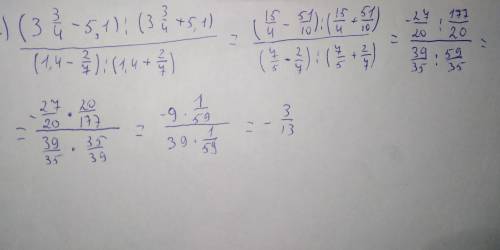 ) (3 3/4 - 5,1) : (3 3/4 + 5,1) / (1,4 - 2/7) : (1,4 + 2/7) = (15/4 - 51/10) : (15/4 + 51/10) / (7/5 - 2/7) : (7/5 + 2/7) = -27/20 : 177/20 / 39/35 : 59/35 =
= -27/20 · 20/177 / 39/35 · 35/39 = -9 · 1/59 / 39 · 1/59 = - 3/13